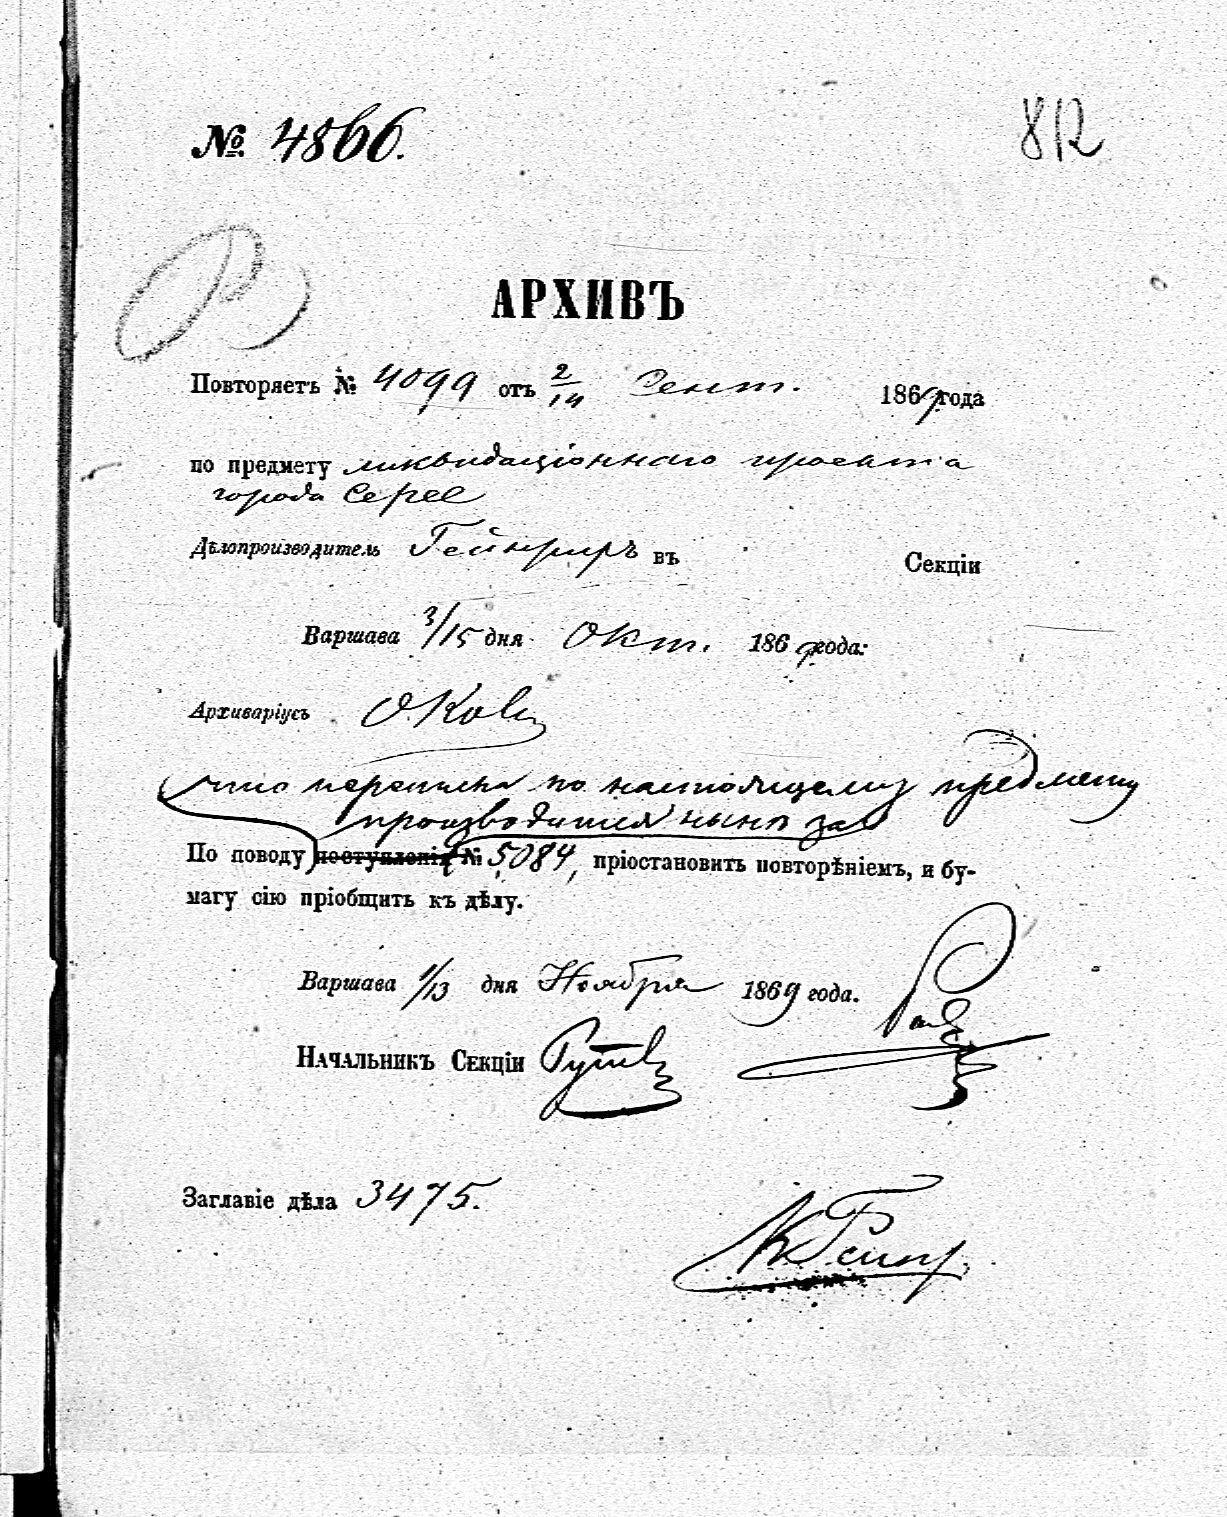 № 4866.
812
АРХИВЪ
Повторяетъ № 4099 отъ 2/14 Сент. 1869 года
по предмету ликвидаціоннаго проекта
города Серее
Дѣлопроизводитель Гейнрихъ въ Секціи
Варшава 3/15 дня Окт. 1869 года:
Архиваріусъ
что переписка по настоящему предмету
производится нынѣ за
По поводу поступленія № 5084, пріостановить повторѣніемъ, и бу-
магу сію пріобщить къ дѣлу.
Варшава 1/13 дня Ноября 1869 года.
Начальникъ Секціи
Заглавіе дѣла 3475.